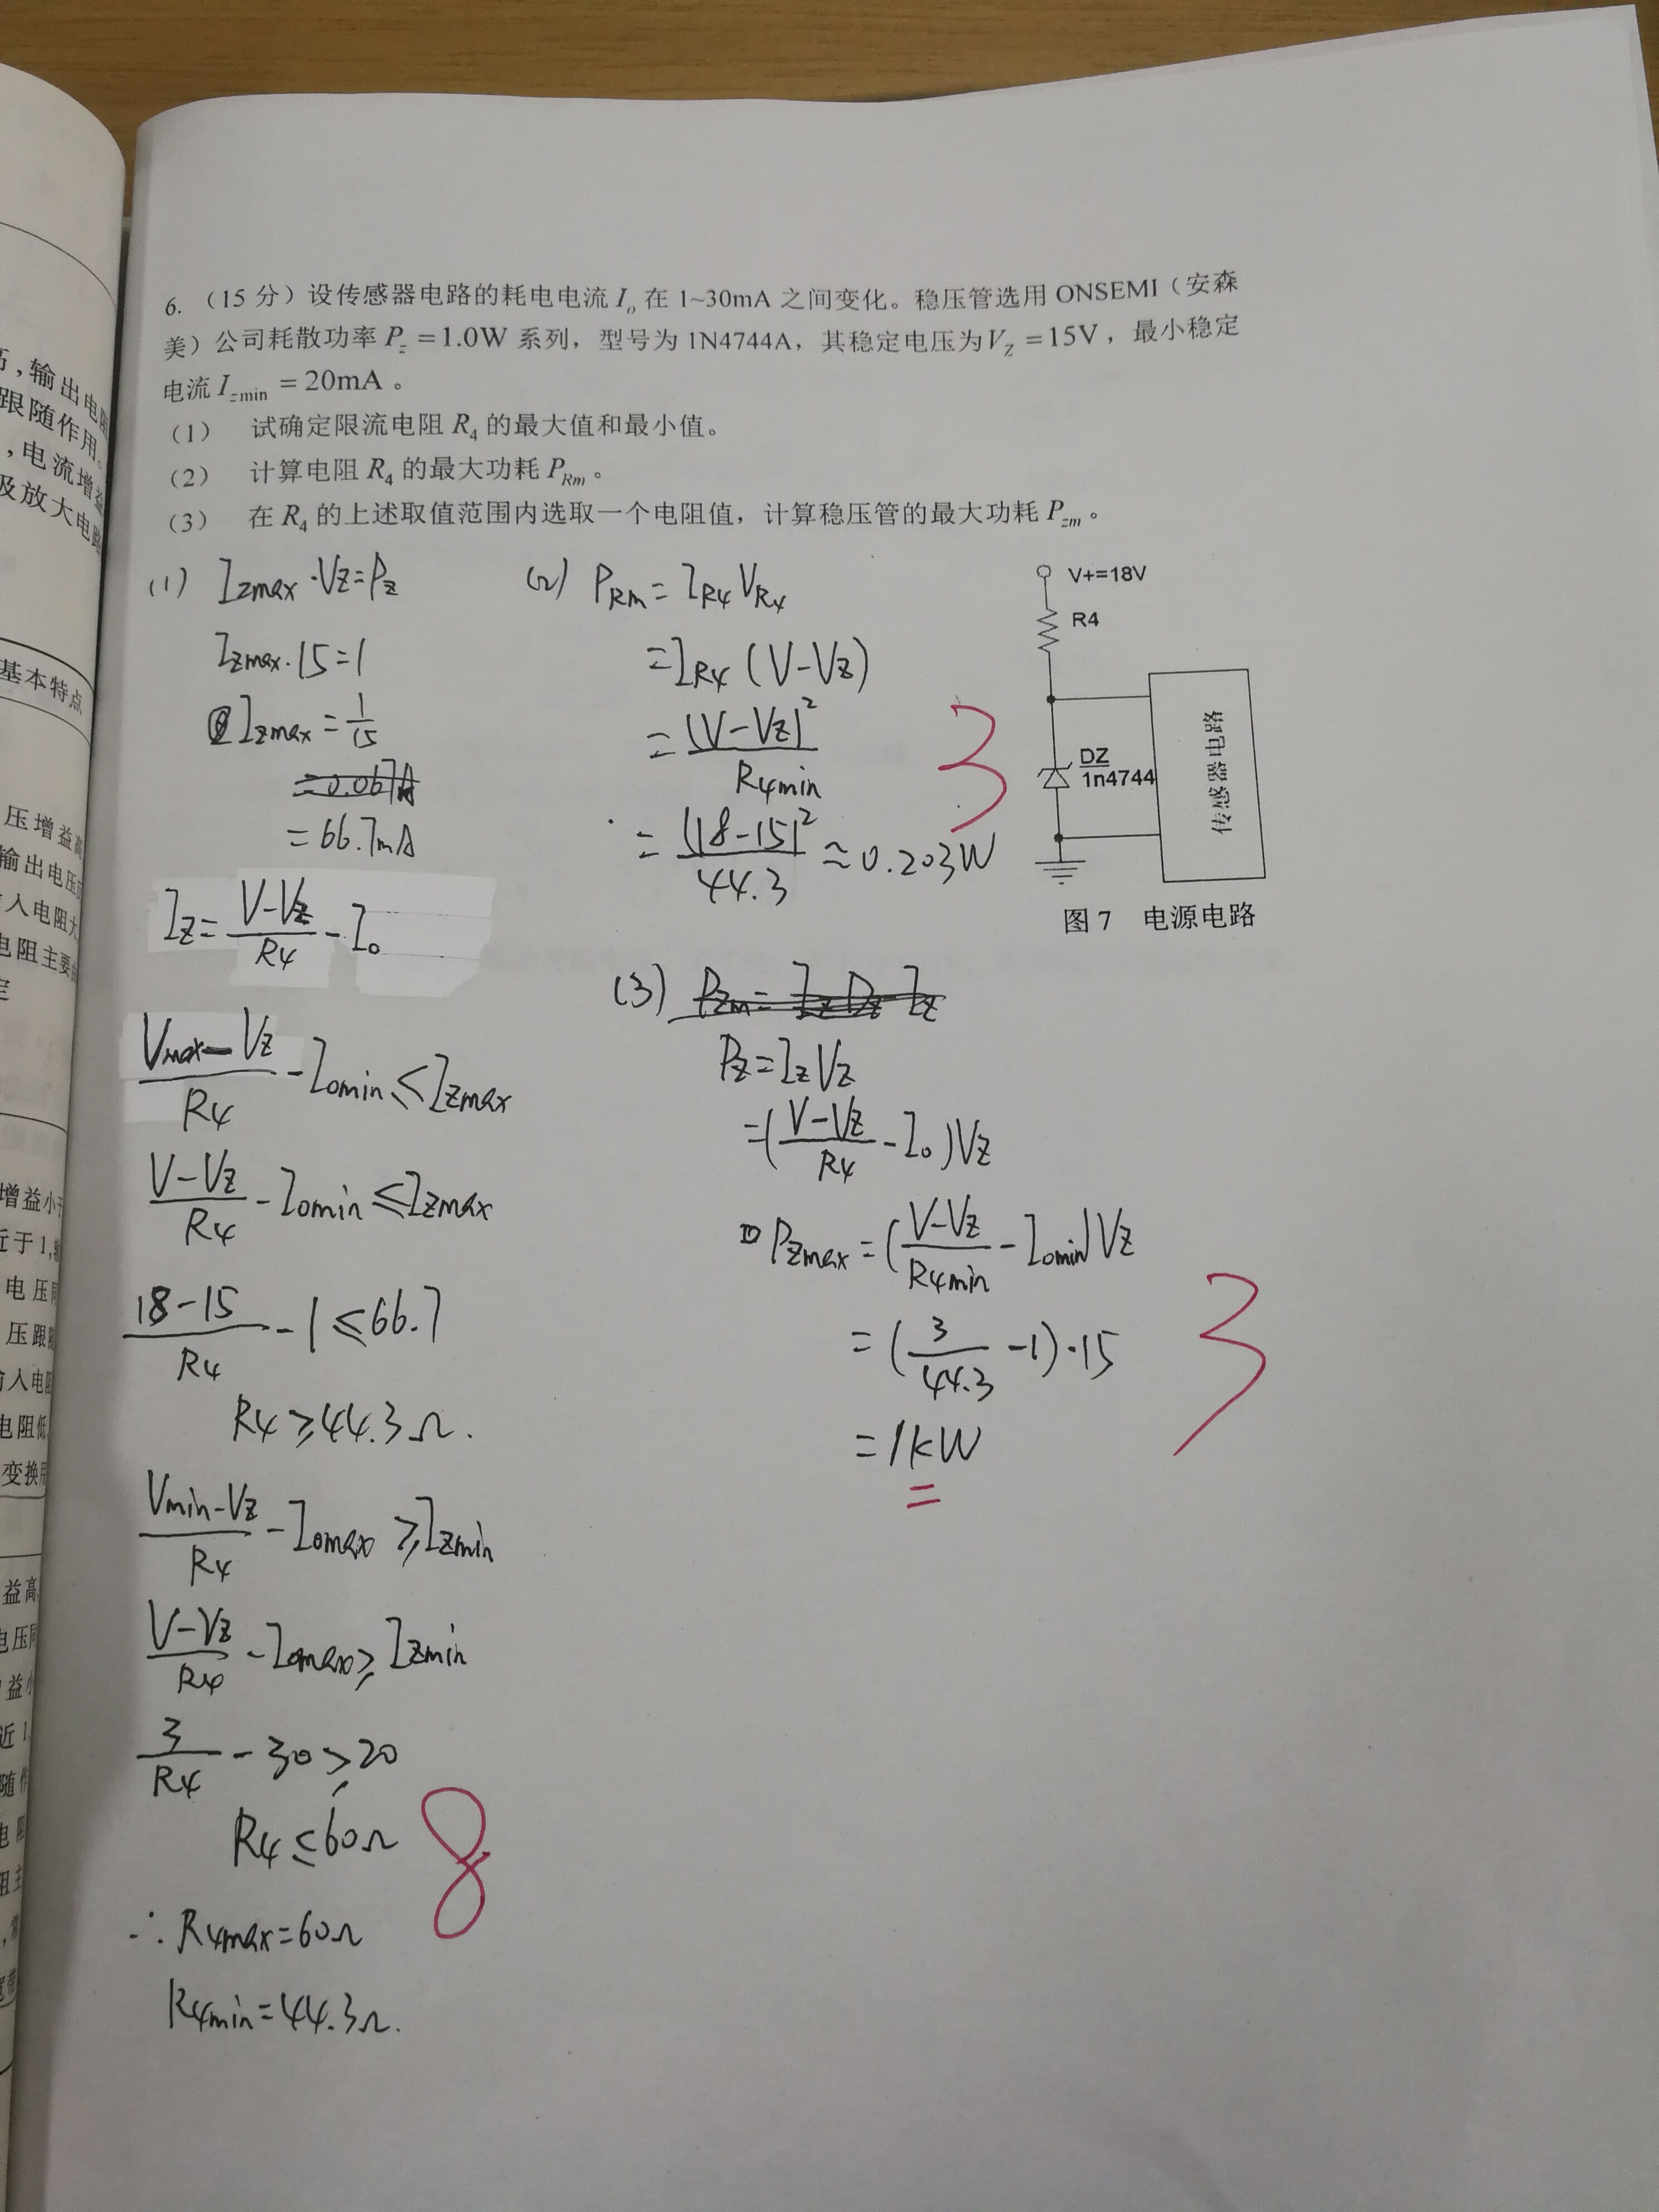 高，输出电阻
跟随作用。
，电流增益
及放大电路
基本特点
压增益高
输出电压
入电阻大
电阻主要由
定
增益小于
近于1,
电压同
压跟随
入电阻
电阻低
变换用
益高
电压同
益小
近1
随作
电阻
阻主
6. （15 分）设传感器电路的耗电电流 I_o 在 1~30mA 之间变化。稳压管选用 ONSEMI（安森
美）公司耗散功率 P_z = 1.0W 系列，型号为 1N4744A，其稳定电压为 V_Z = 15V，最小稳定
电流 I_zmin = 20mA 。
（1） 试确定限流电阻 R_4 的最大值和最小值。
（2） 计算电阻 R_4 的最大功耗 P_Rm 。
（3） 在 R_4 的上述取值范围内选取一个电阻值，计算稳压管的最大功耗 P_zm 。
(1) Izmax·Vz=Pz
Izmax·15=1
Izmax=1/15
=0.067A
=66.7mA
Iz=(V-Vz)/R4-Io
(Vmax-Vz)/R4-Iomin≤Izmax
(V-Vz)/R4-Iomin≤Izmax
(18-15)/R4-1≤66.7
R4≥44.3Ω.
(Vmin-Vz)/R4-Iomax≥Izmin
(V-Vz)/R4-Iomax≥Izmin
3/R4-30≥20
R4≤60Ω
8
∴R4max=60Ω
R4min=44.3Ω.
(2) PRm=IR4VR4
=IR4(V-Vz)
=(V-Vz)²/R4min
=(18-15)²/44.3≈0.203W
3
(3) Pzm=IzDzIz
Pz=IzVz
=((V-Vz)/R4-Io)Vz
Pzmax=((V-Vz)/R4min-Iomin)Vz
=(3/44.3-1)·15
=1kW
3
V+=18V
R4
DZ
1n4744
传感器电路
图 7 电源电路